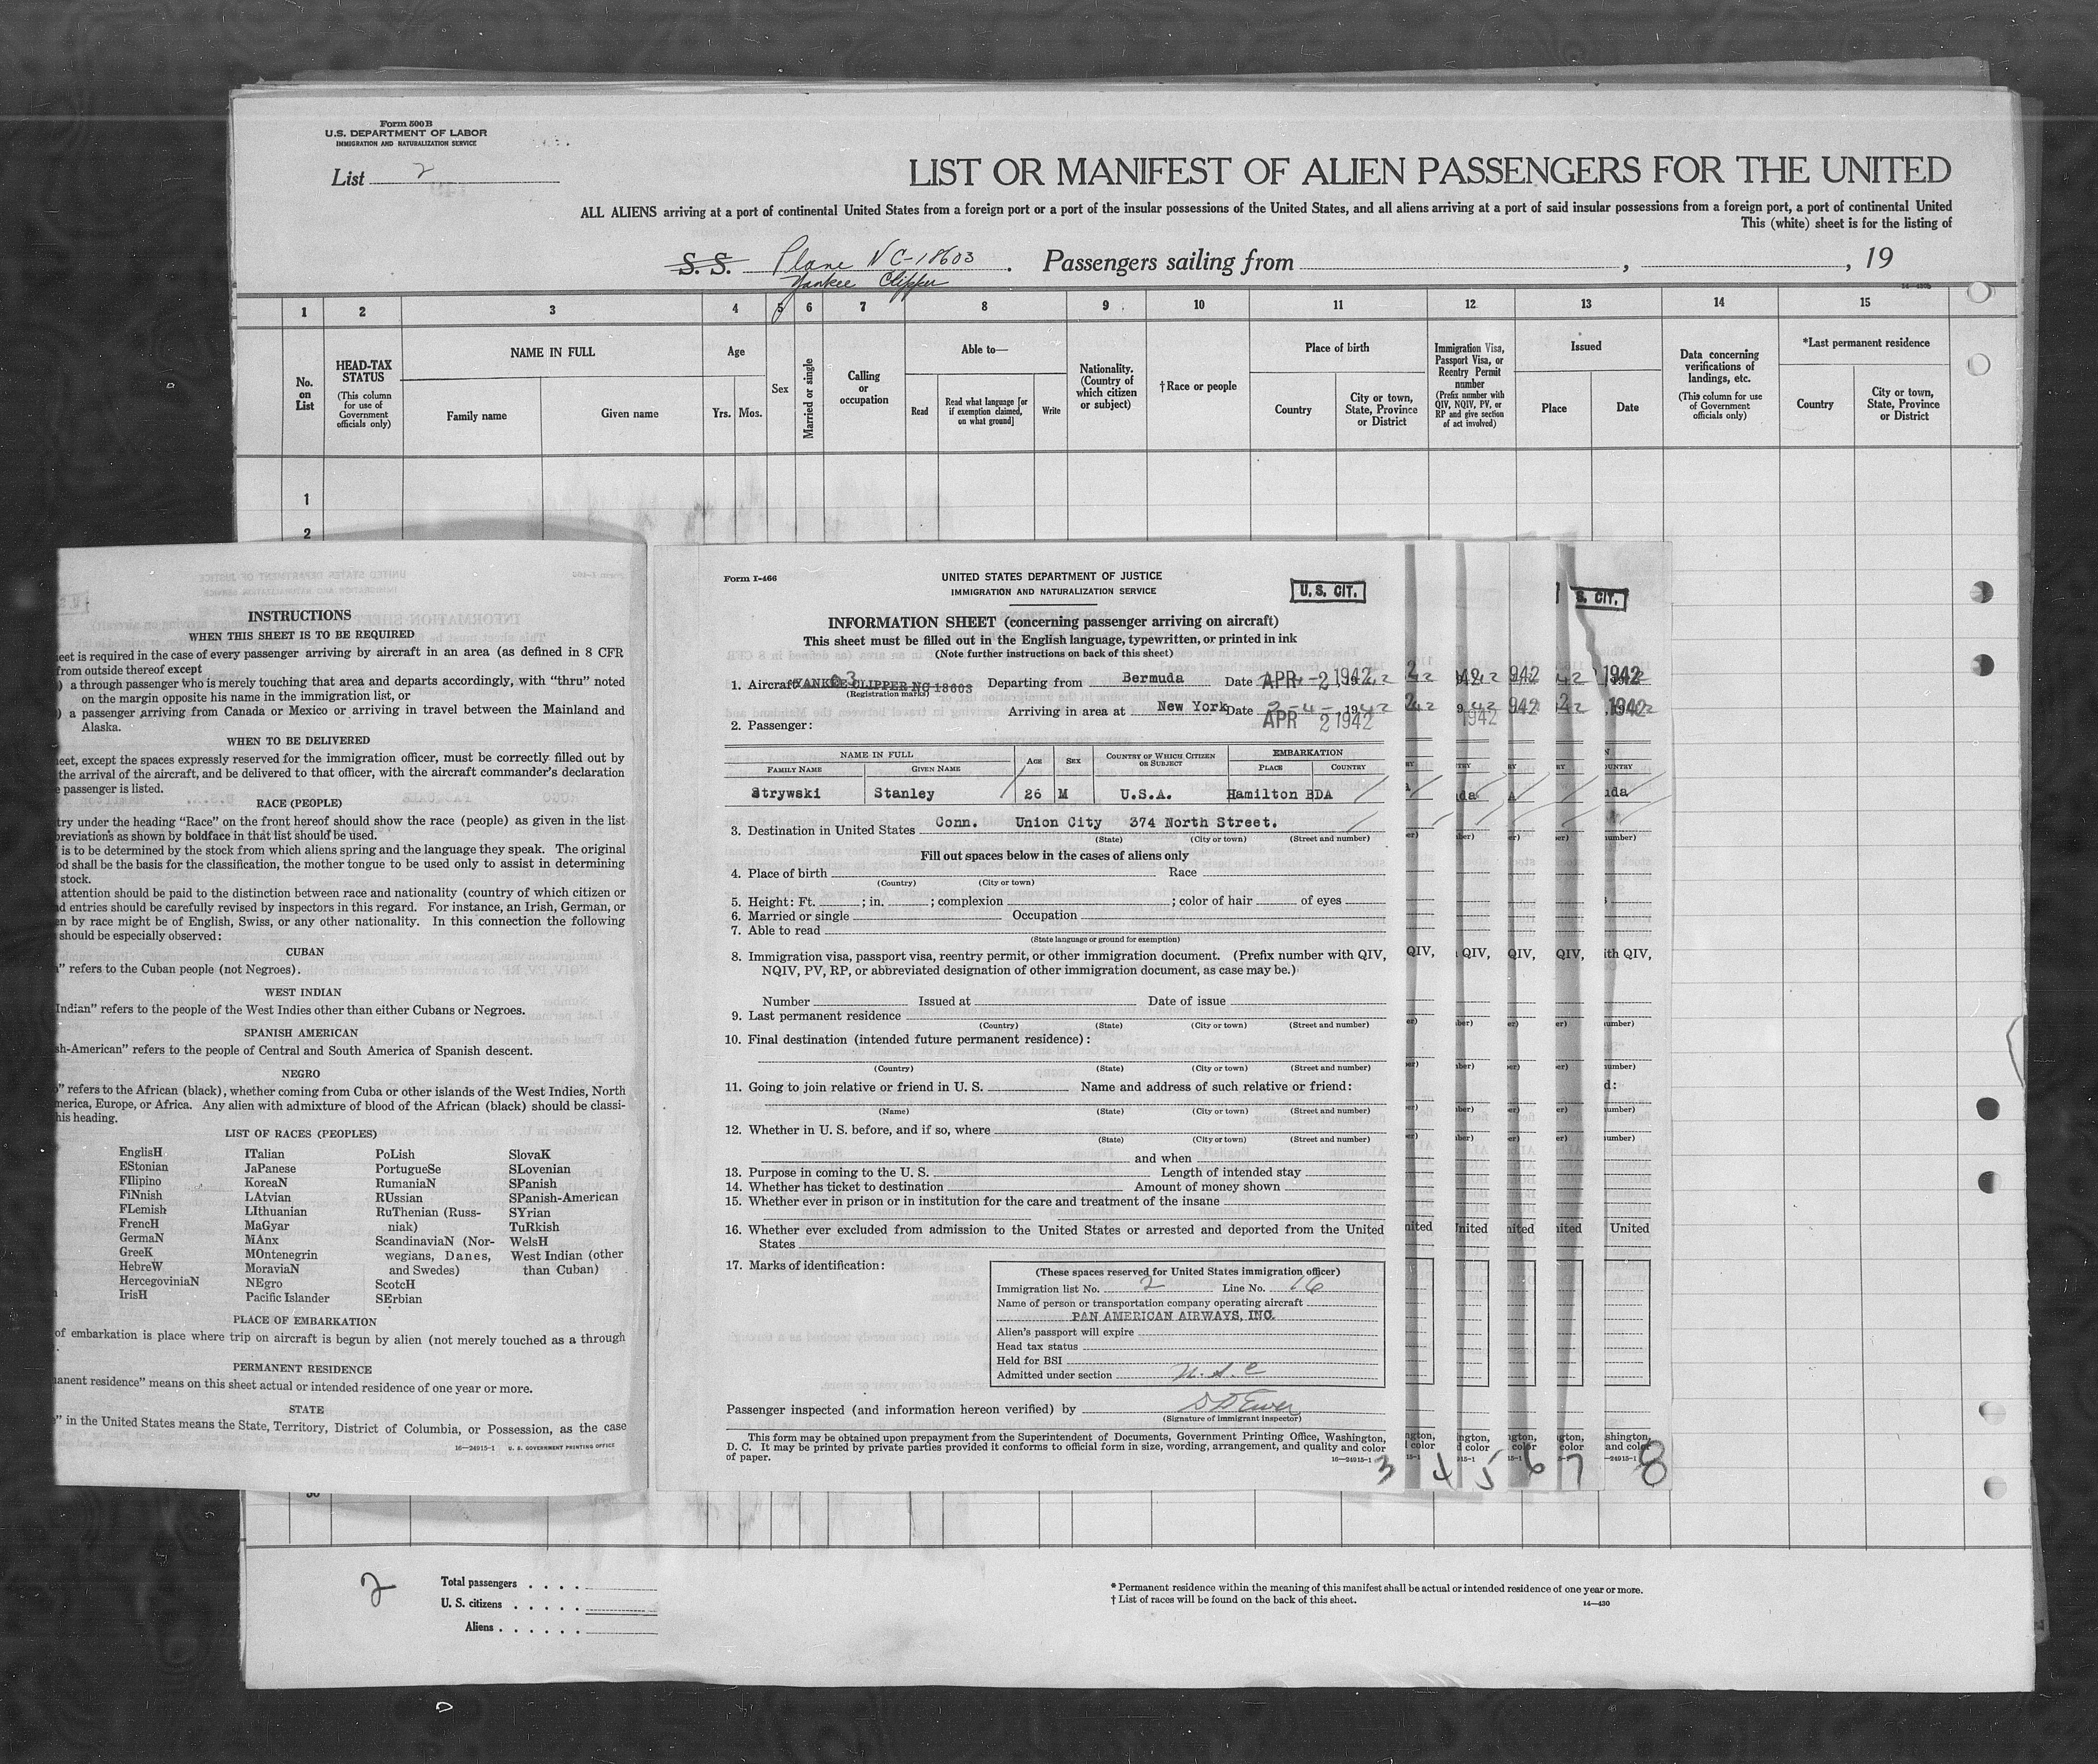 Form 500 B
U.S. DEPARTMENT OF LABOR
IMMIGRATION AND NATURALIZATION SERVICE
List 2
LIST OR MANIFEST OF ALIEN PASSENGERS FOR THE UNITED
ALL ALIENS arriving at a port of continental United States from a foreign port or a port of the insular possessions of the United States, and all aliens arriving at a port of said insular possessions from a foreign port, a port of continental United
This (white) sheet is for the listing of
S. S. Plane NC-18603 . Passengers sailing from , , 19
Yankee Clipper
14—430b
1 2 3 4 5 6 7 8 9 10 11 12 13 14 15
No. on List
HEAD-TAX STATUS
(This column for use of Government officials only)
NAME IN FULL
Family name
Given name
Age
Yrs. Mos.
Sex
Married or single
Calling or occupation
Able to—
Read
Read what language [or if exemption claimed, on what ground]
Write
Nationality. (Country of which citizen or subject)
†Race or people
Place of birth
Country
City or town, State, Province or District
Immigration Visa, Passport Visa, or Reentry Permit number
(Prefix number with QIV, NQIV, PV, or RP and give section of act involved)
Issued
Place
Date
Data concerning verifications of landings, etc.
(This column for use of Government officials only)
*Last permanent residence
Country
City or town, State, Province or District
1
2
INSTRUCTIONS
WHEN THIS SHEET IS TO BE REQUIRED
eet is required in the case of every passenger arriving by aircraft in an area (as defined in 8 CFR
from outside thereof except
) a through passenger who is merely touching that area and departs accordingly, with "thru" noted
on the margin opposite his name in the immigration list, or
) a passenger arriving from Canada or Mexico or arriving in travel between the Mainland and
Alaska.
WHEN TO BE DELIVERED
eet, except the spaces expressly reserved for the immigration officer, must be correctly filled out by
the arrival of the aircraft, and be delivered to that officer, with the aircraft commander's declaration
e passenger is listed.
RACE (PEOPLE)
try under the heading "Race" on the front hereof should show the race (people) as given in the list
breviations as shown by boldface in that list should be used.
is to be determined by the stock from which aliens spring and the language they speak. The original
od shall be the basis for the classification, the mother tongue to be used only to assist in determining
stock.
attention should be paid to the distinction between race and nationality (country of which citizen or
d entries should be carefully revised by inspectors in this regard. For instance, an Irish, German, or
n by race might be of English, Swiss, or any other nationality. In this connection the following
should be especially observed:
CUBAN
" refers to the Cuban people (not Negroes).
WEST INDIAN
Indian" refers to the people of the West Indies other than either Cubans or Negroes.
SPANISH AMERICAN
sh-American" refers to the people of Central and South America of Spanish descent.
NEGRO
" refers to the African (black), whether coming from Cuba or other islands of the West Indies, North
merica, Europe, or Africa. Any alien with admixture of blood of the African (black) should be classi-
his heading.
LIST OF RACES (PEOPLES)
EnglisH ITalian PoLish SlovaK
EStonian JaPanese PortugueSe SLovenian
FIlipino KoreaN RumaniaN SPanish
FiNnish LAtvian RUssian SPanish-American
FLemish LIthuanian RuThenian (Russ- SYrian
FrencH MaGyar niak) TuRkish
GermaN MAnx ScandinaviaN (Nor- WelsH
GreeK MOntenegrin wegians, Danes, West Indian (other
HebreW MoraviaN and Swedes) than Cuban)
HercegoviniaN NEgro ScotcH
IrisH Pacific Islander SErbian
PLACE OF EMBARKATION
of embarkation is place where trip on aircraft is begun by alien (not merely touched as a through
PERMANENT RESIDENCE
anent residence" means on this sheet actual or intended residence of one year or more.
STATE
" in the United States means the State, Territory, District of Columbia, or Possession, as the case
16—24915-1 U. S. GOVERNMENT PRINTING OFFICE
Form I-466
UNITED STATES DEPARTMENT OF JUSTICE
IMMIGRATION AND NATURALIZATION SERVICE
U. S. CIT.
S. CIT.
INFORMATION SHEET (concerning passenger arriving on aircraft)
This sheet must be filled out in the English language, typewritten, or printed in ink
(Note further instructions on back of this sheet)
1. Aircraft YANKEE CLIPPER NC 18603 Departing from Bermuda Date APR -2 1942
(Registration marks)
Arriving in area at New York Date APR 2 1942
2. Passenger:
NAME IN FULL
FAMILY NAME GIVEN NAME AGE SEX COUNTRY OF WHICH CITIZEN OR SUBJECT EMBARKATION
PLACE COUNTRY
Strywski Stanley 26 M U.S.A. Hamilton BDA
3. Destination in United States Conn. Union City 374 North Street.
(State) (City or town) (Street and number)
Fill out spaces below in the cases of aliens only
4. Place of birth Race
(Country) (City or town)
5. Height: Ft. ; in. ; complexion ; color of hair of eyes
6. Married or single Occupation
7. Able to read
(State language or ground for exemption)
8. Immigration visa, passport visa, reentry permit, or other immigration document. (Prefix number with QIV,
NQIV, PV, RP, or abbreviated designation of other immigration document, as case may be.)
Number Issued at Date of issue
9. Last permanent residence
(Country) (State) (City or town) (Street and number)
10. Final destination (intended future permanent residence):
(Country) (State) (City or town) (Street and number)
11. Going to join relative or friend in U. S. Name and address of such relative or friend:
(Name) (State) (City or town) (Street and number)
12. Whether in U. S. before, and if so, where
(State) (City or town) (Street and number)
and when
13. Purpose in coming to the U. S. Length of intended stay
14. Whether has ticket to destination Amount of money shown
15. Whether ever in prison or in institution for the care and treatment of the insane
16. Whether ever excluded from admission to the United States or arrested and deported from the United
States
17. Marks of identification:
(These spaces reserved for United States immigration officer)
Immigration list No. 2 Line No. 16
Name of person or transportation company operating aircraft
PAN AMERICAN AIRWAYS, INC.
Alien's passport will expire
Head tax status
Held for BSI
Admitted under section U.S.C
Passenger inspected (and information hereon verified) by
(Signature of immigrant inspector)
This form may be obtained upon prepayment from the Superintendent of Documents, Government Printing Office, Washington,
D. C. It may be printed by private parties provided it conforms to official form in size, wording, arrangement, and quality and color
of paper.
16—24915-1
3 4 5 6 7 8
30
2
Total passengers . . . .
U. S. citizens . . . . .
Aliens . . . . . .
* Permanent residence within the meaning of this manifest shall be actual or intended residence of one year or more.
† List of races will be found on the back of this sheet.
14—430